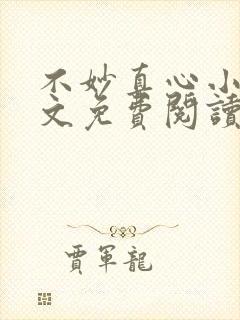 不妙直心小
文免費閱讀
賈軍龍